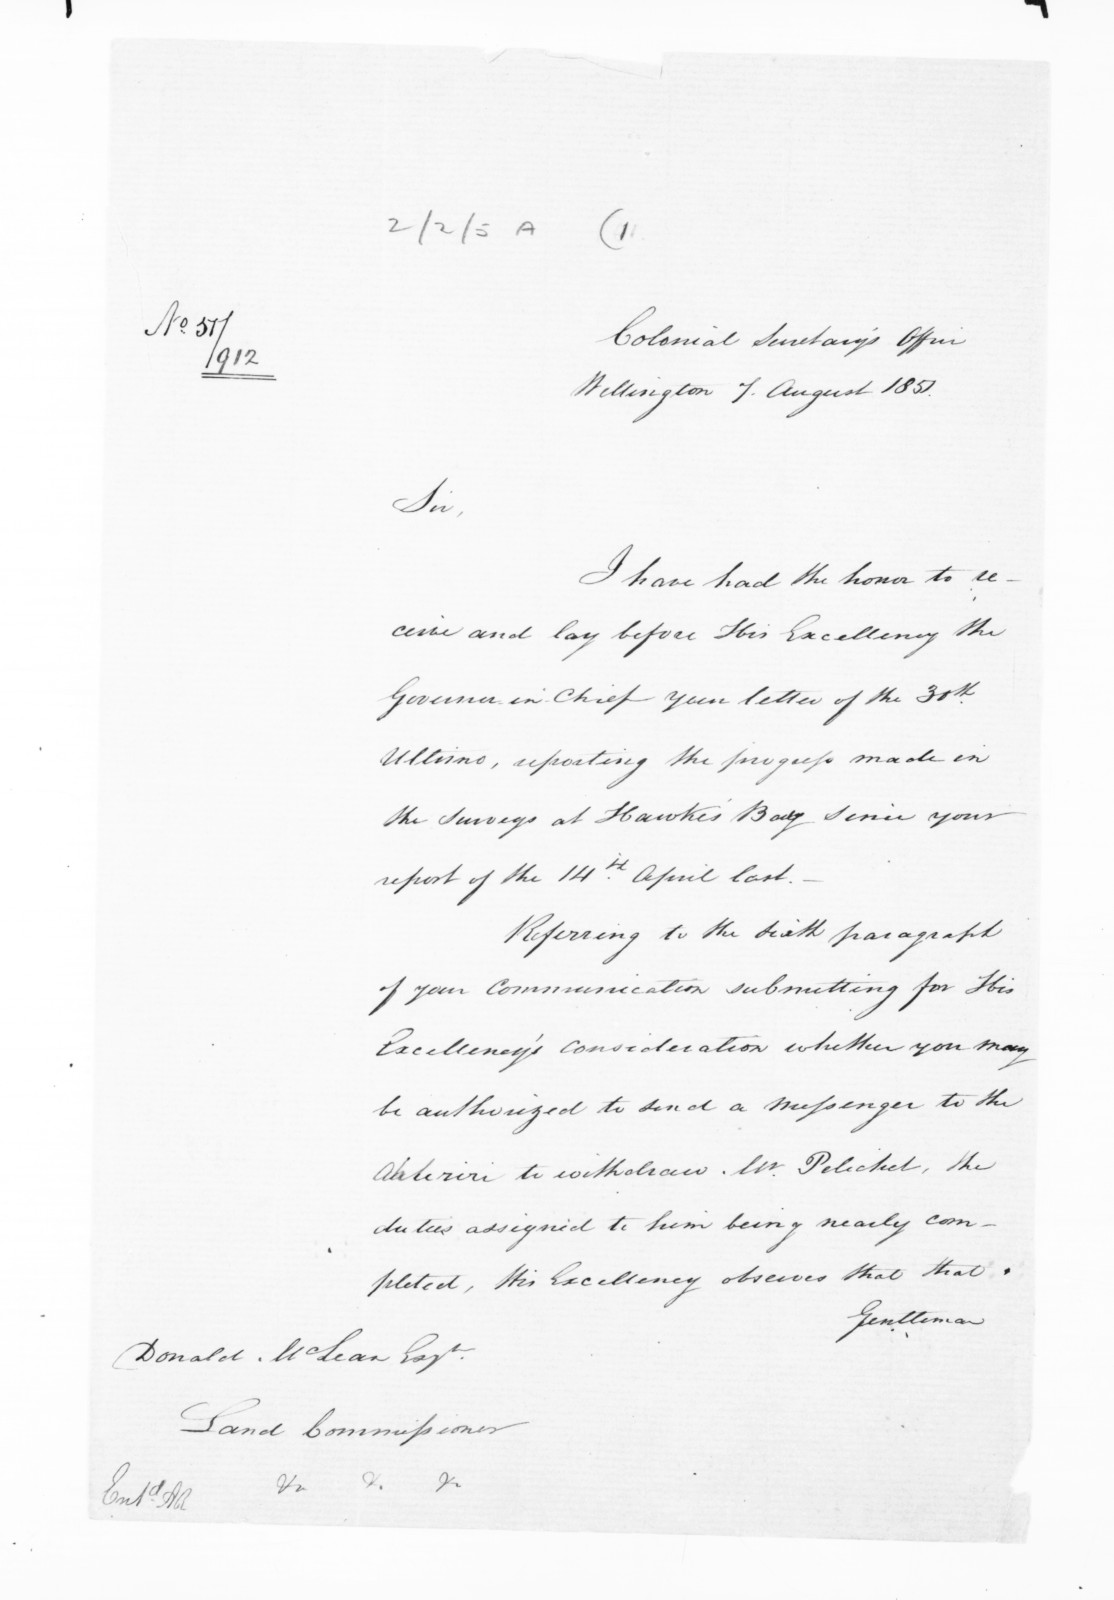 2/2/5 A (1
No 51/
/912
Colonial Secretary's Office
Wellington 7. August 1851.
Sir,
I have had the honor to re-
ceive and lay before His Excellency the
Governor in Chief your letter of the 30th
Ultimo, reporting the progress made in
the surveys at Hawke's Bay since your
report of the 14th. April last. -
Referring to the sixth paragraph
of your communication submitting for His
Excellency's consideration whether you may
be authorized to send a messenger to the
Ahuriri to withdraw Mr. Pelichet, the
duties assigned to him being nearly com-
pleted, His Excellency observes that that
Gentleman
Donald McLean Esqr.
Land Commissioner
&c &c &c
Entd. AR